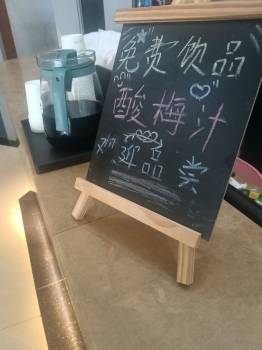 免费饮品
酸梅汁
欢迎品尝